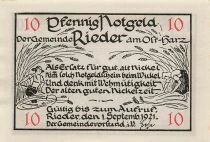 Pfennig Notgeld
Der Gemeinde Rieder am Ost-Harz
10 10
Als Ersatz für gut alt Nickel
Nim solch Notgeldschein beim Wickel
Und denk mit Wehmütigkeit
Der alten guten Nickelzeit
Gültig bis zum Aufruf.
Rieder den 1 Septemb. 1921.
Der Gemeindevorstand
10 10